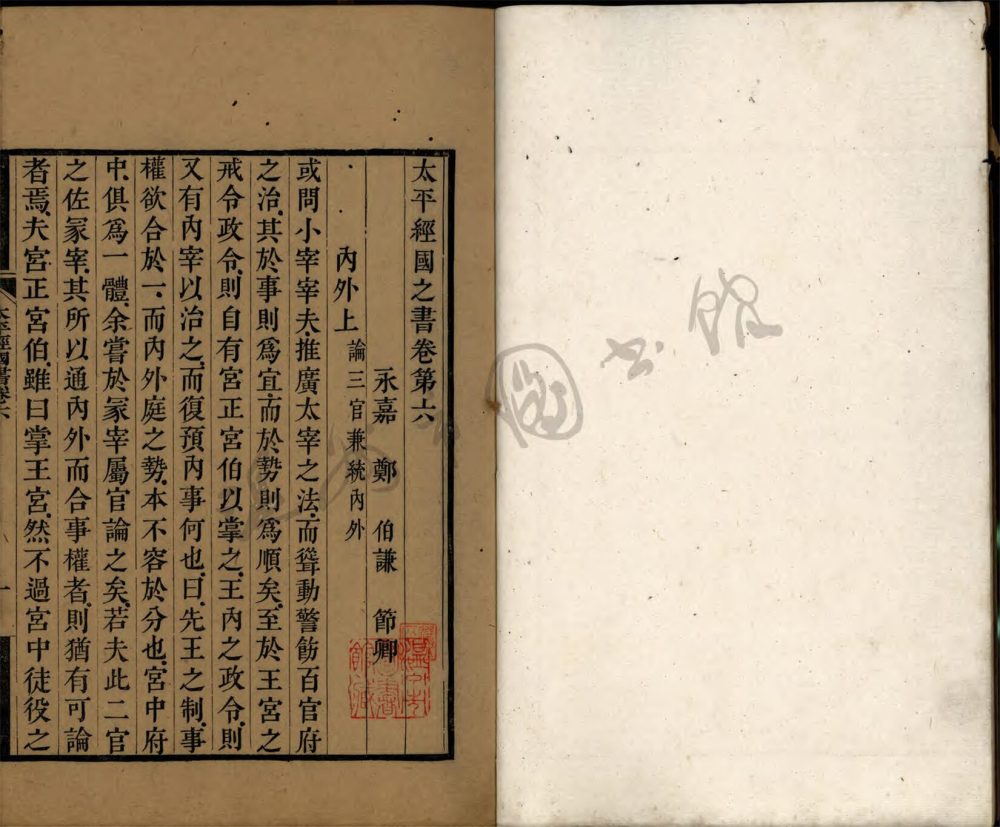 太平經國之書卷第六
永嘉 鄭 伯謙 節卿
內外上 論三官兼統內外
或問小宰宰夫、推廣太宰之法、而聳動警飭百官府
之治、其於事則爲宜、而於勢則爲順矣、至於王宮之
戒令政令、則自有宮正宮伯以掌之、王內之政令、則
又有內宰以治之、而復預內事何也、曰、先王之制、事
權欲合於一、而內外庭之勢、本不容於分也、宮中府
中、俱爲一體、余嘗於冢宰屬官論之矣、若夫此二官
之佐冢宰、其所以通內外而合事權者、則猶有可論
者焉、夫宮正宮伯、雖曰掌王宮、然不過宮中徒役之
太平經國書卷六
一